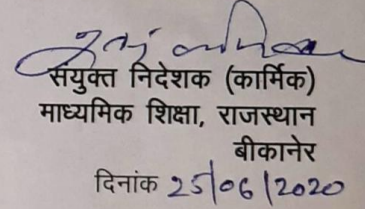 संयुक्त निदेशक (कार्मिक)
माध्यमिक शिक्षा, राजस्थान
बीकानेर
दिनांक 25/06/2020